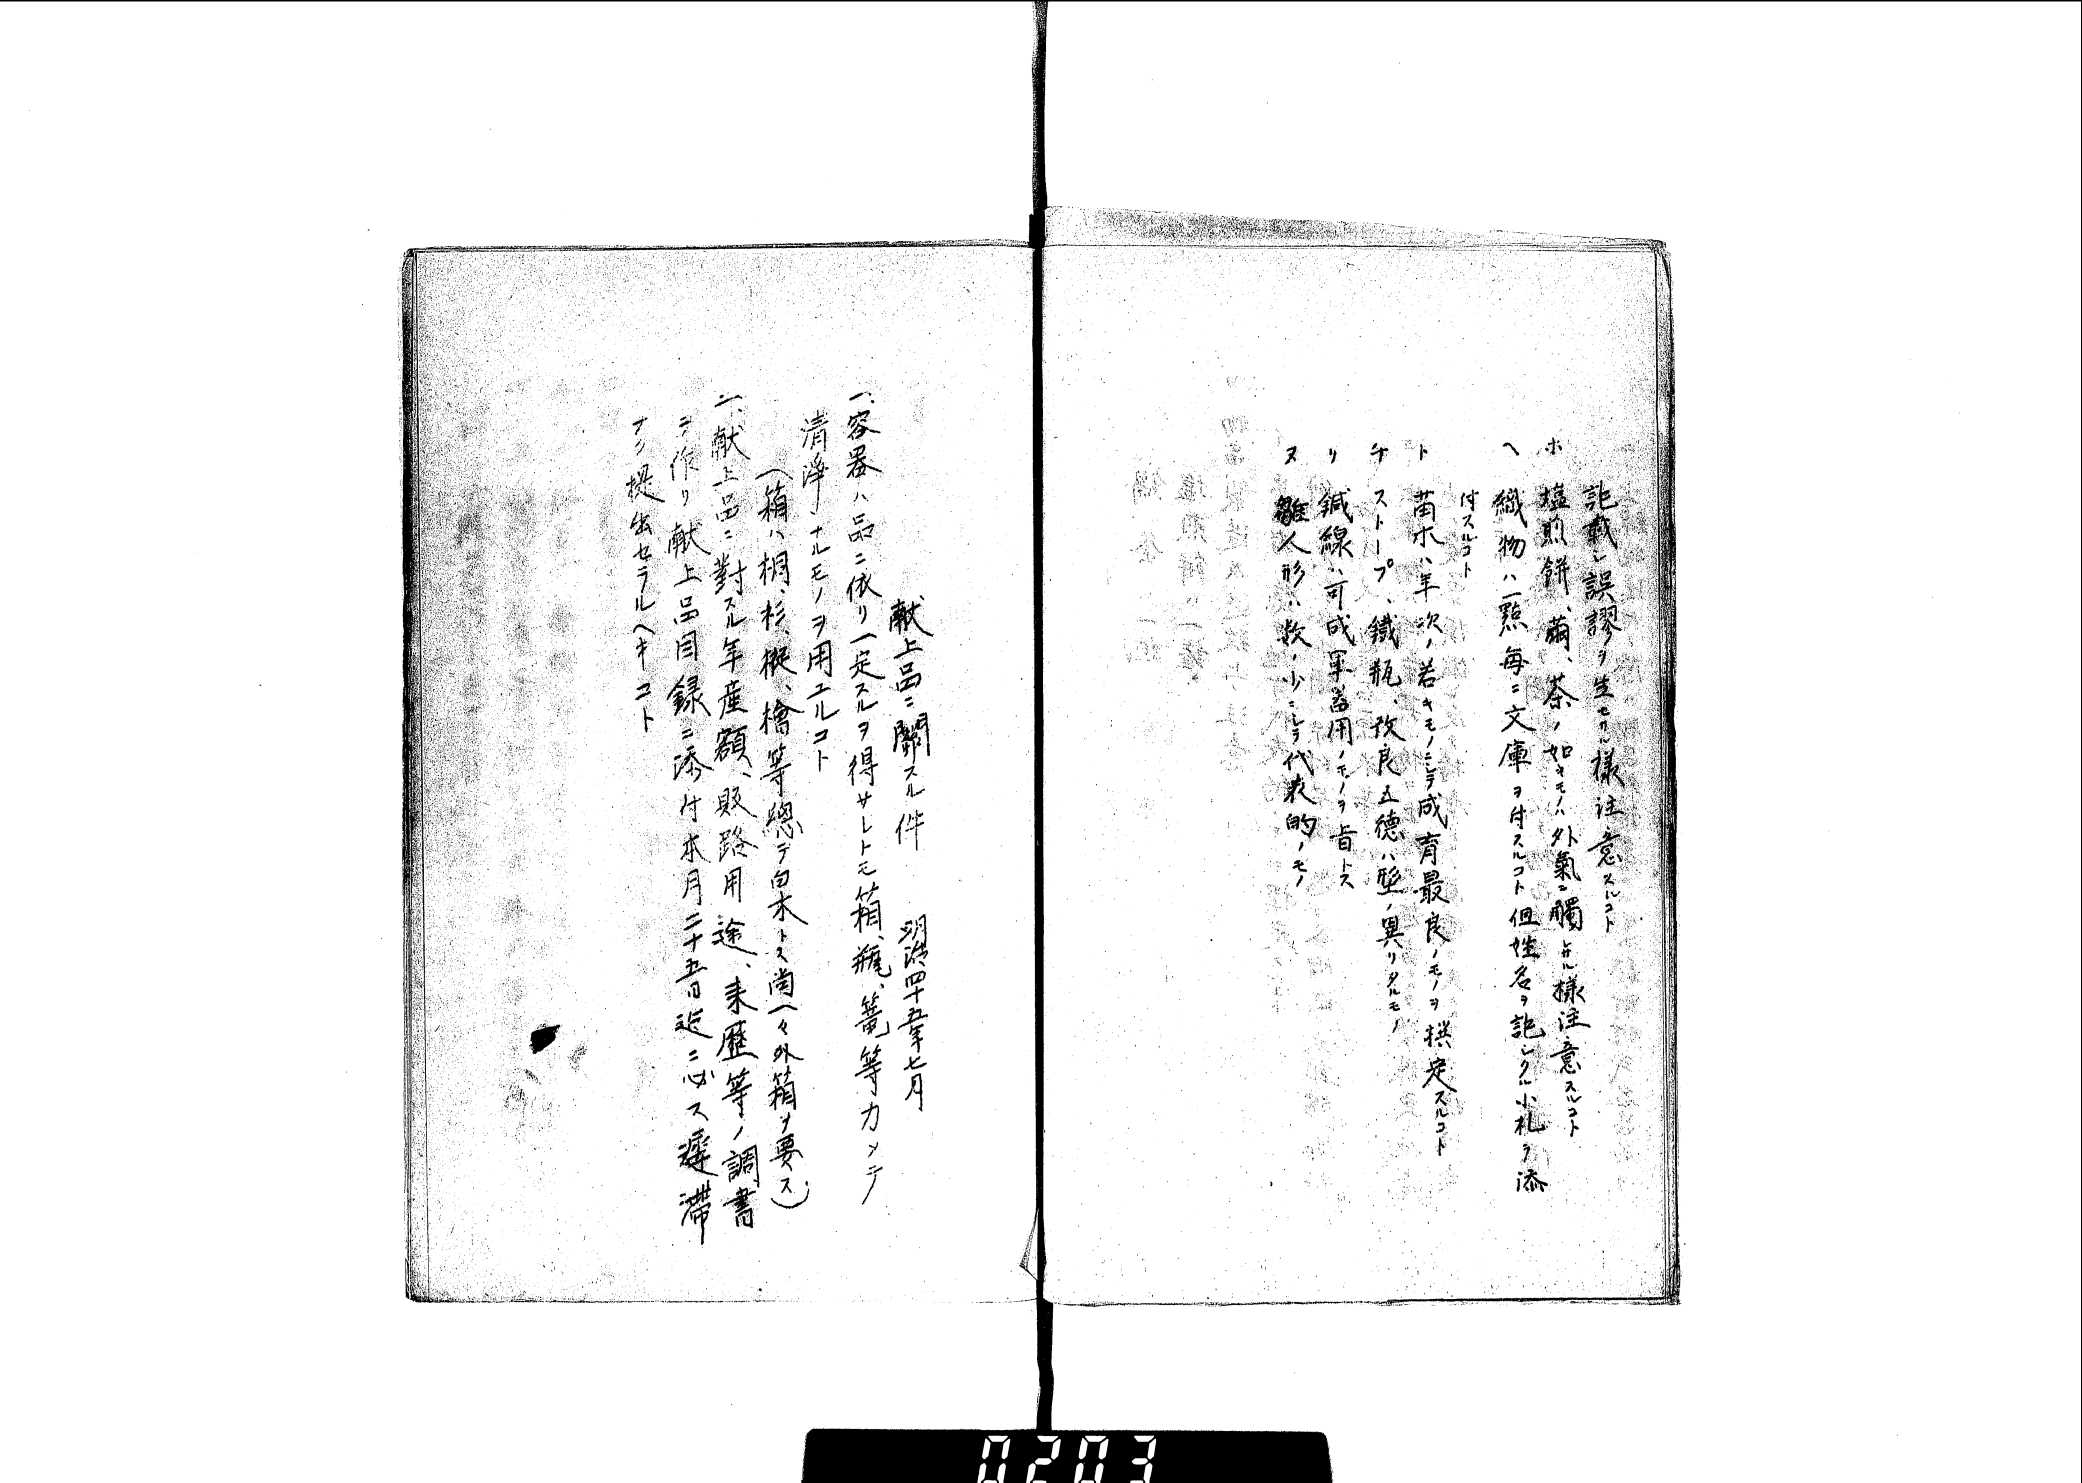 記載シ誤謬ヲ生セサル様注意スルコト
ホ 塩煎餅、繭、茶ノ如キモノハ外氣ニ觸レサル様注意スルコト
ヘ 織物ハ一點毎ニ文庫ヲ付スルコト但姓名ヲ記シタル小札ヲ添
付スルコト
ト 苗木ハ年次ノ若キモノニシテ成育最良ノモノヲ撰定スルコト
チ ストーブ、鐵瓶、改良五德ハ型ノ異リタルモノ
リ 鍼線ハ可成軍器用ノモノヲ旨トス
ヌ 雛人形ハ数ノ少ニシテ代表的ノモノ
献上品ニ關スル件 明治四十五年七月
一、容器ハ品ニ依リ一定スルヲ得サレトモ箱、瓶、籠等カメテ
清浄ナルモノヲ用ユルコト
(箱ハ桐、杉、樅、檜等總テ白木トス尚一々外箱ヲ要ス)
二、献上品ニ對スル年産額、販路用途、来歴等ノ調書
ヲ作リ献上品目録ニ添付本月二十五日迄ニ必ス遅滞
ナク提出セラルヘキコト
0203